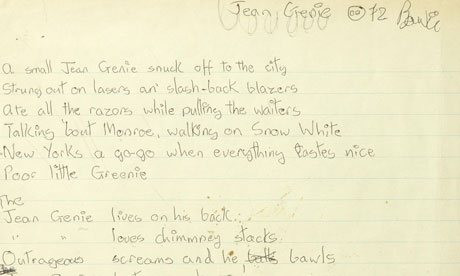 Jean Genie © 72 Bowie
A small Jean Genie snuck off to the city
Strung out on lasers an' slash-back blazers
Ate all the razors while pulling the waiters
Talking 'bout Monroe, walking on Snow White
New Yorks a go-go when everything tastes nice
Poor little Greenie
The
Jean Genie lives on his back
" " loves chimmney stacks
Outrageous screams and he bawls